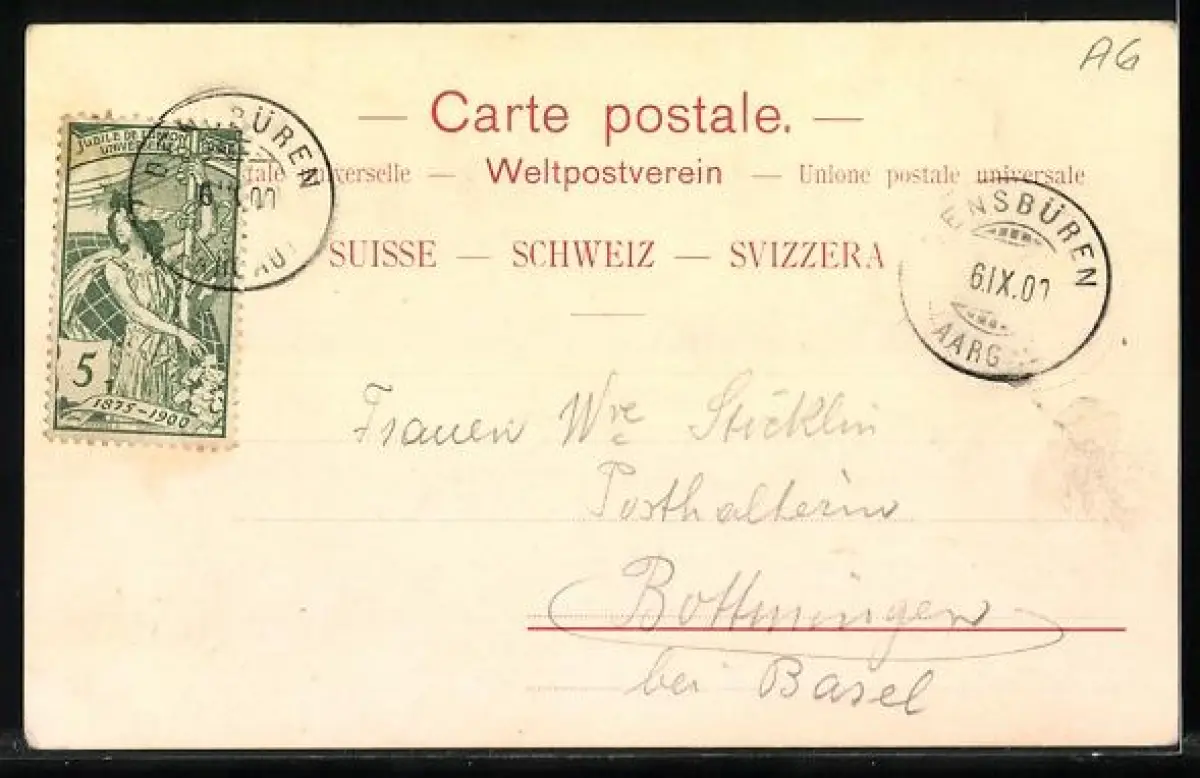 AG
— Carte postale. —
tale universelle — Weltpostverein — Unione postale universale
SUISSE — SCHWEIZ — SVIZZERA
JUBILÉ DE L'UNION
UNIVERSELLE
5
1875–1900
BÜREN
ENSBÜREN
6.IX.00
AARG
Frauen Wwe Stöcklin
Posthalterin
Bottmingen
bei Basel